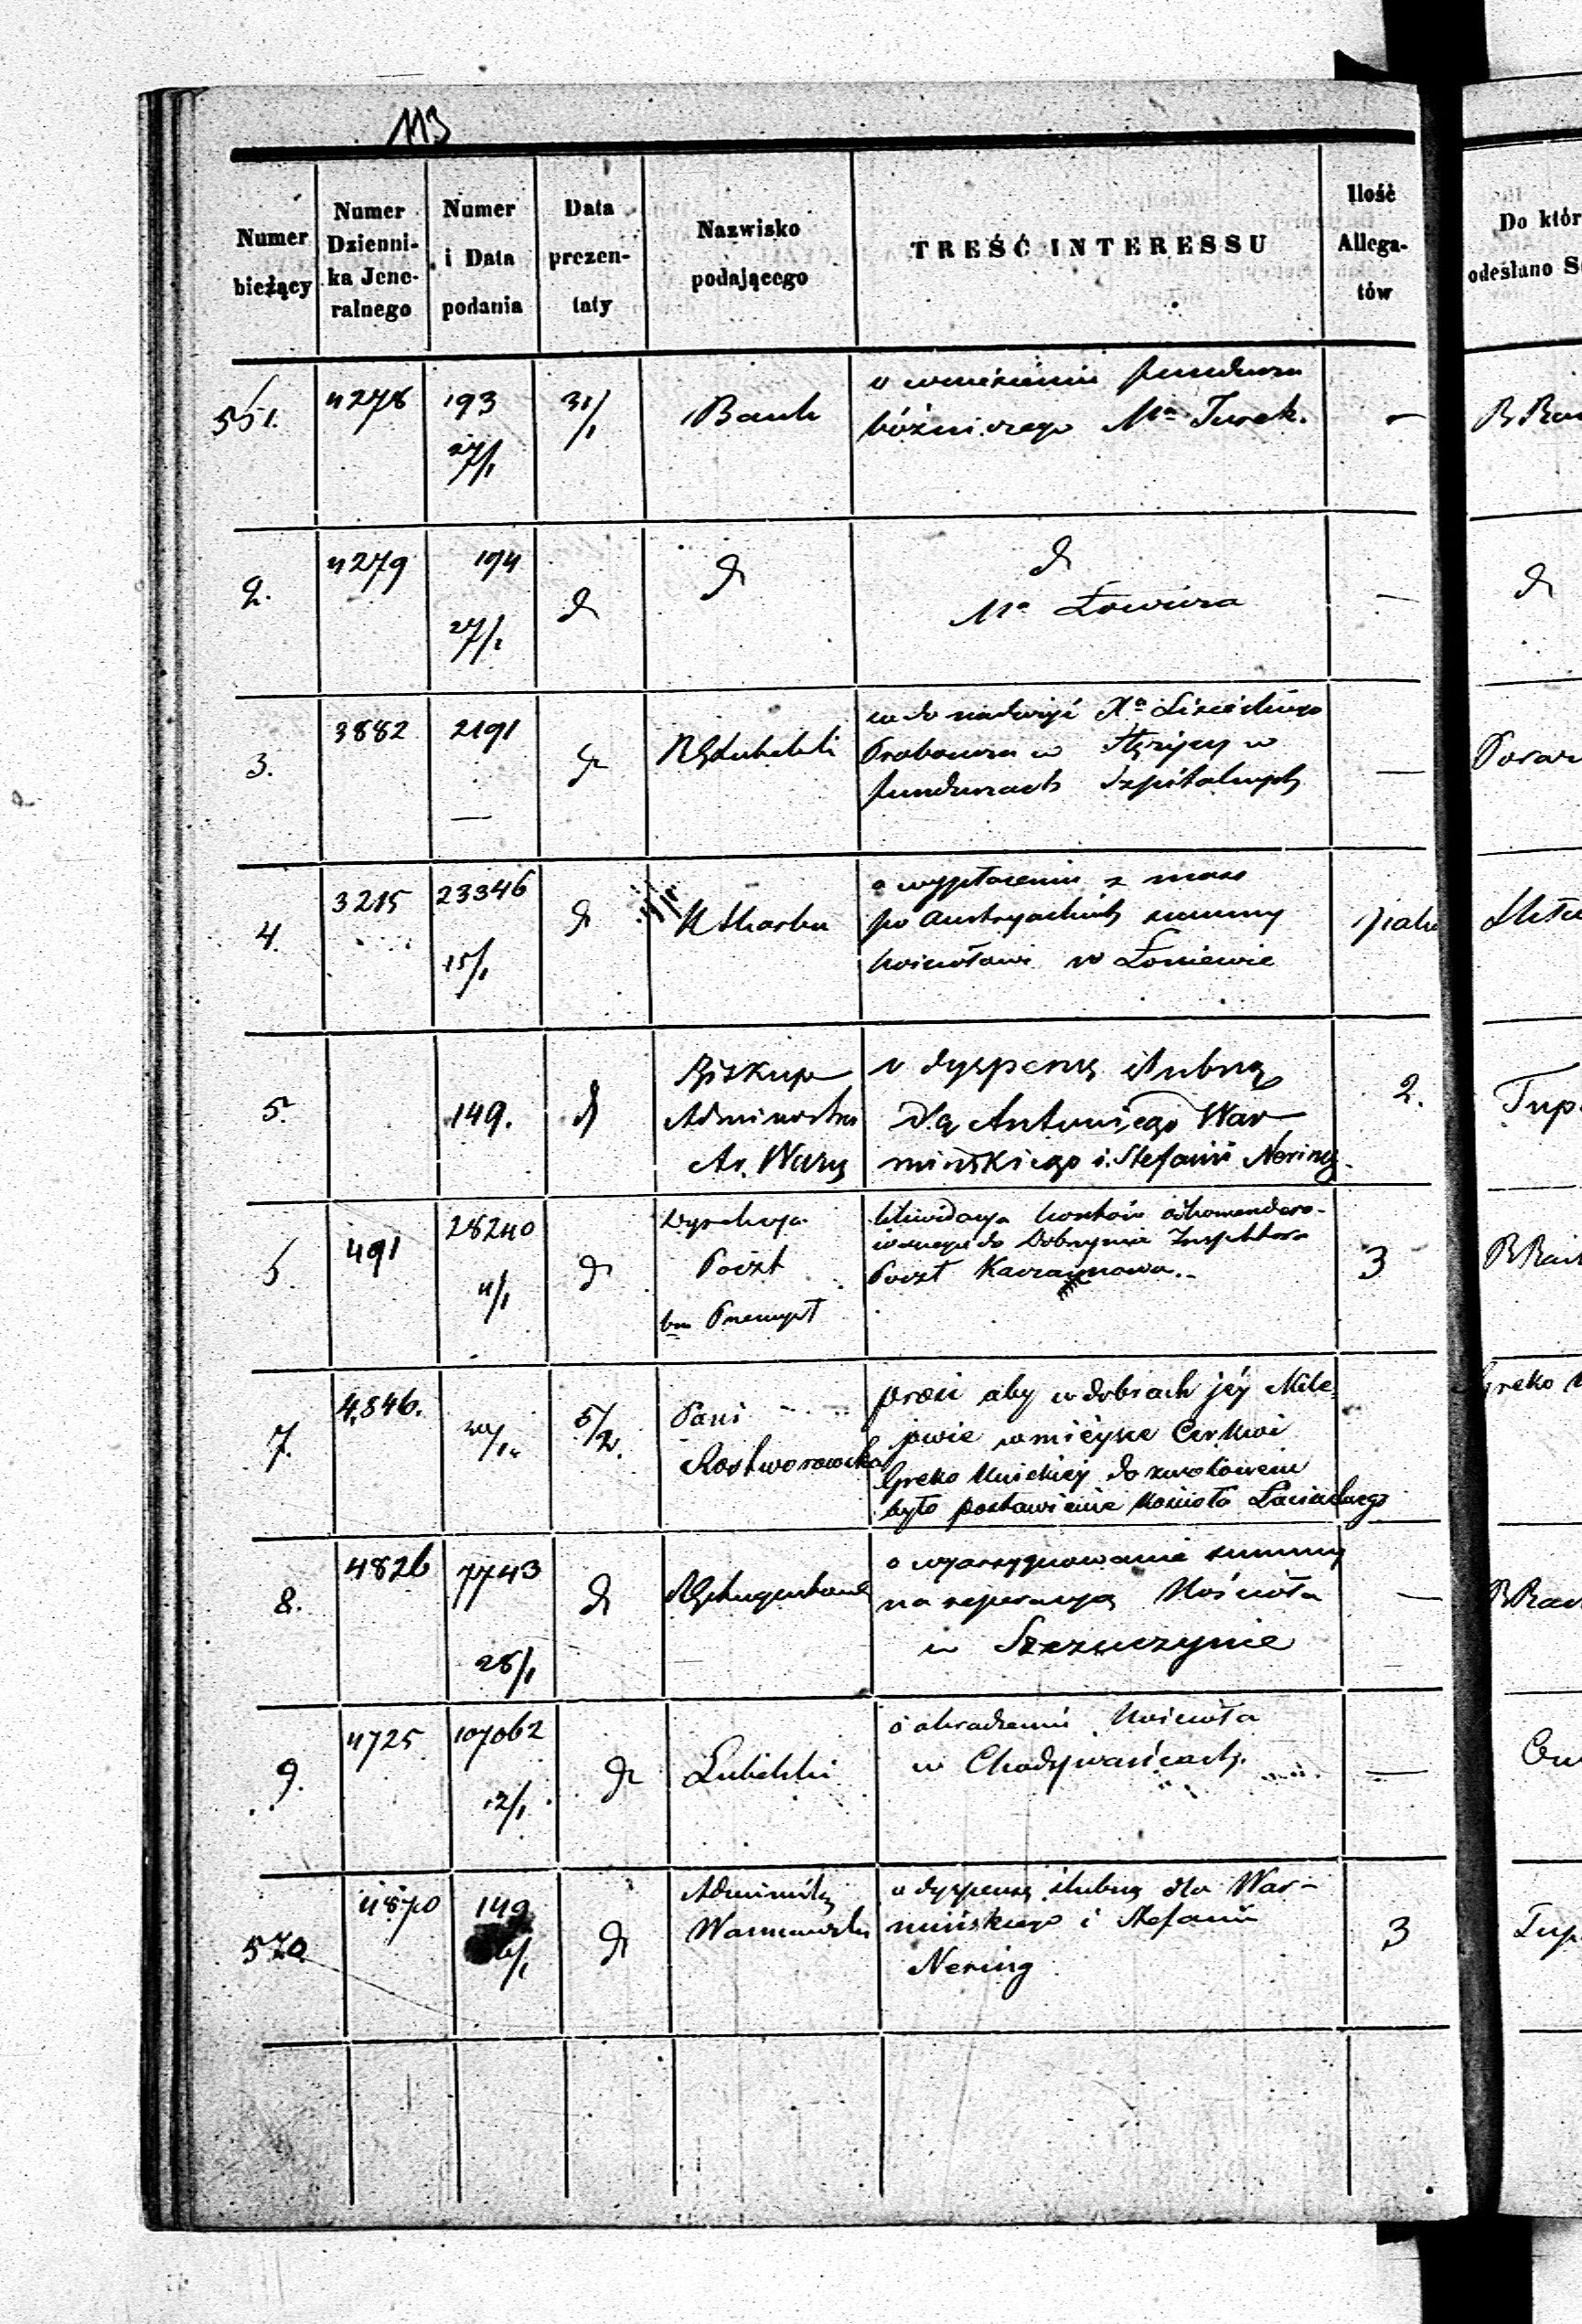 113
Numer bieżący
Numer Dzienni-ka Jene-ralnego
Numer i Data podania
Data prezen-taty
Nazwisko podającego
TREŚĆ INTERESSU
Ilość Allega-tów
Do któr
odesłano
551. 4278 193 27/1 31/1 Bank
o wniesieniu funduszu
bóżniczego Mta Turek. —
2. 4279 194 27/1 d d
d
Mta Łowicza —
d
3. 3882 2191 — d RGLubelski
Xa
Proboszcza w Stężycy w
funduszach Szpitalnych —
4. 3215 23346 15/1 d KSkarbu
o wypłacenie z mass
po austryackich summy
kościołowi w Łoniewie
5. 149. d
Biskup
Administra
Ar. Warsz
o dyspensę ślubną
dla Antoniego War
mińskiego i Stefanii Nering
2.
6. 491 28240 4/1 d
Dyrekcya
Poczt
likwidacya kosztów odkomendero-
wanego do Dobrzynia Inspektora
Poczt
3
7. 4,846. 5/2.
Pani
Rostworowska
prosi aby w dobrach jéj Mile
jowie w miéysce Cerkwi
Greko Unickiéj dozwolonem
było postawienie kościoła Łacińskiego
Greko
8. 4826 7743 28/1 d RGAugustows
o wyassygnowanie summy
na reperacyą Kościoła
w Szczuczynie
—
9. 4725 107062 12/1 d Lubelski
o okradzeniu Kościoła
w Chodywańcach.
—
570 4870 149 d
Administr
Warszawski
o dyspensę ślubną dla War-
mińskiego i Stefanii
Nering
3